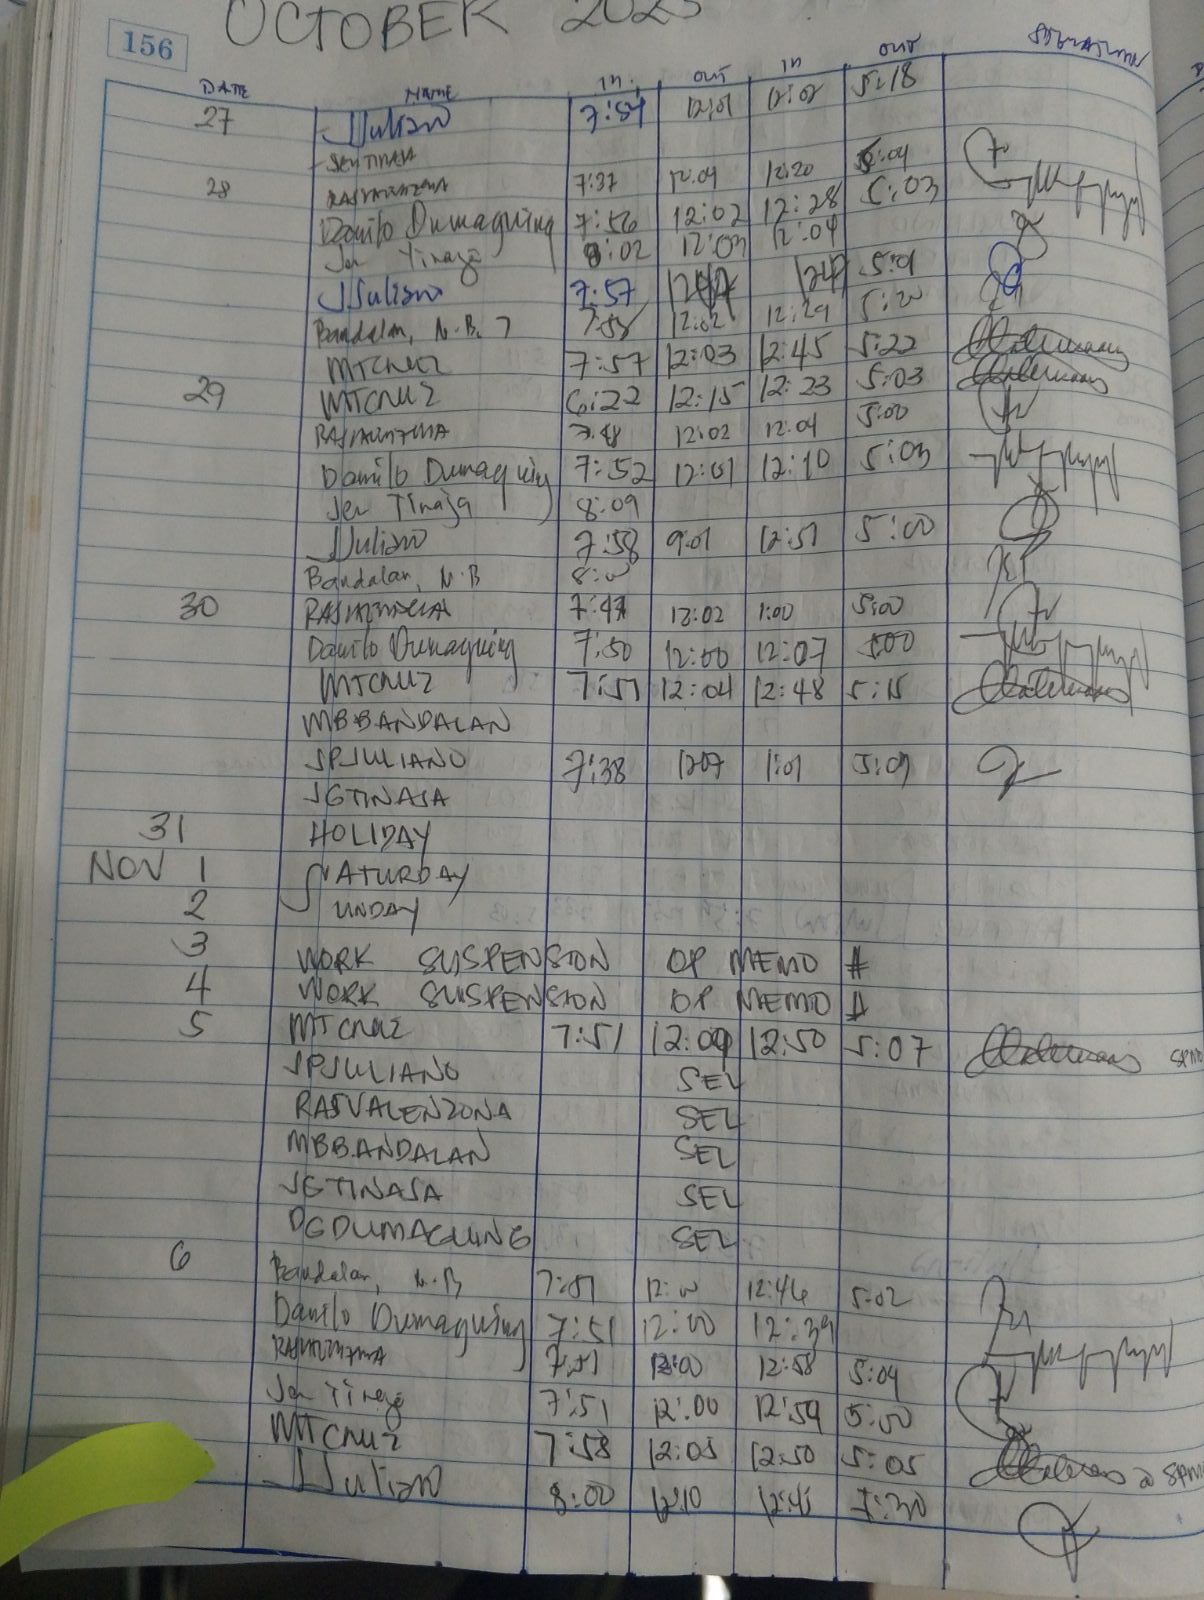 OCTOBER 2025
156
DATE NAME IN OUT IN OUT
27 JJuliano 7:54 12:01 12:02 5:18
28 7:37 12:04 12:20 5:04
Danilo Dumaguing 7:56 12:02 12:28 5:03
Jen Tinasa 8:02 12:03 12:04
JJuliano 7:57 5:01
Bandalan, M.B. 7:58 12:02 12:29 5:20
MTCRUZ 7:57 12:03 12:45 5:22
29 MTCRUZ 6:22 12:15 12:23 5:03
7:48 12:02 12:04 5:00
Danilo Dumaguing 7:52 12:01 12:10 5:03
Jen Tinasa 8:09
JJuliano 7:58 9:01 12:51 5:00
Bandalan, M.B 8:00
30 7:47 12:02 1:00 5:00
Danilo Dumaguing 7:50 12:00 12:07 5:00
MTCRUZ 7:51 12:04 12:48 5:15
MBBANDALAN
JPJULIANO 7:38 1207 1:01 5:01
JGTINASA
31 HOLIDAY
NOV 1 SATURDAY
2 SUNDAY
3 WORK SUSPENSION OP MEMO #
4 WORK SUSPENSION OP MEMO #
5 MTCRUZ 7:51 12:09 12:50 5:07
JPJULIANO SEL
RASVALENZONA SEL
MBBANDALAN SEL
JGTINASA SEL
DGDUMAGUING SEL
6 Bandalan, M.B 7:51 12:00 12:46 5:02
Danilo Dumaguing 7:51 12:00 12:39
7:51 12:00 12:58 5:04
Jen Tinasa 7:51 12:00 12:59 5:00
MTCRUZ 7:58 12:05 12:50 5:05
JJuliano 8:00 12:10 12:41 7:30